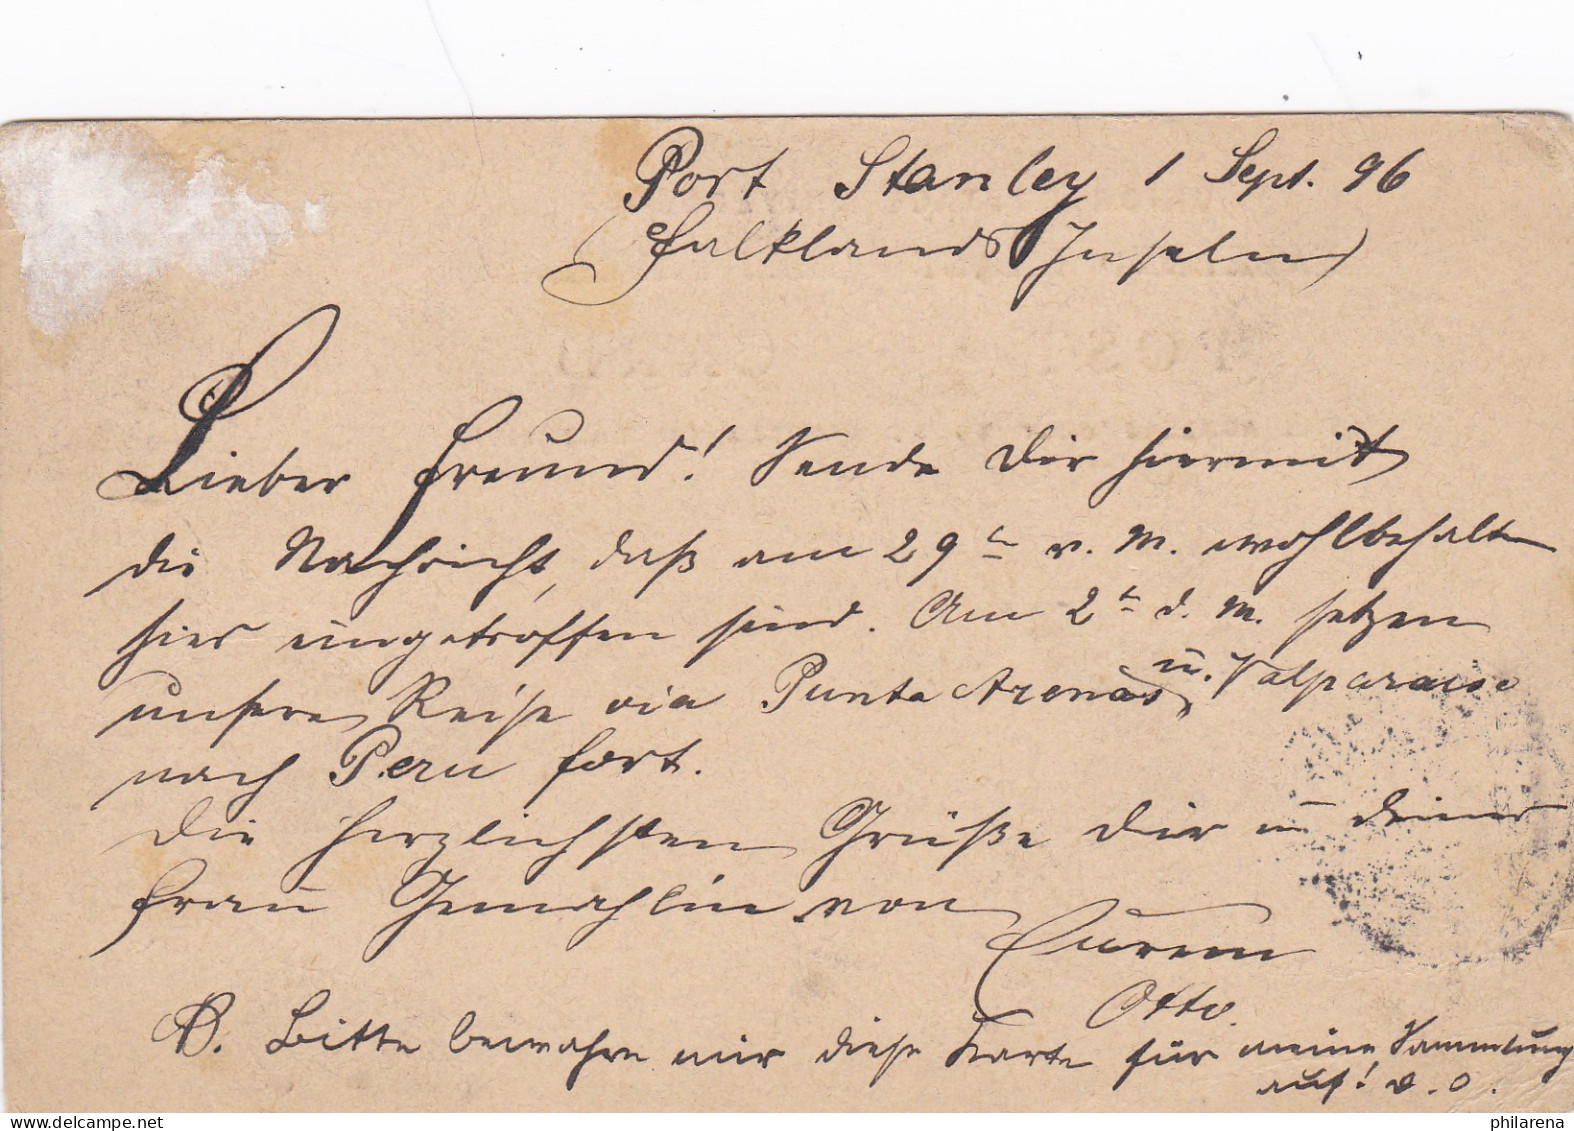 Port Stanley 1 Sept. 96
(Falklands Inseln)
Lieber Freund! Sende Dir hiermit
die Nachricht, daß am 29ten v. M. wohlbehalten
hier eingetroffen sind. Am 2ten d. M. setzen
unsere Reise via Punta Arenas u. Valparaiso
nach Peru fort.
Die herzlichsten Grüße Dir u Deiner
Frau Gemahlin von
Eurem
Otto.
B. Bitte bewahre mir diese Karte für meine Sammlung
auf! d. O.
philarena